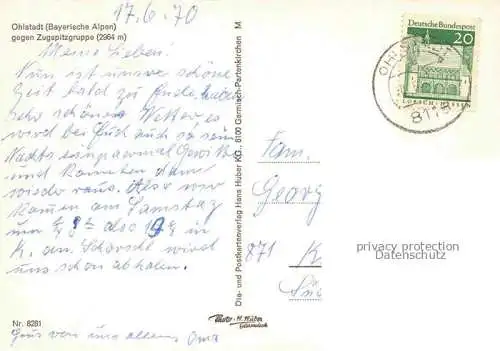 17.6.70
Ohlstadt (Bayerische Alpen)
gegen Zugspitzgruppe (2964 m)
Meine Lieben!
Nun ist unsere schöne
Zeit bald zu Ende, haben
sehr schönes Wetter es
wird bei Euch auch so sein
Nachts einpaarmal Gewitter
und konnten dann
wieder raus. Also wir
kommen am Samstag
um also in
K. an. Schorschl wird
uns schon abholen.
Nr. 8281
Gruß von uns allen Oma
Dia- und Postkartenverlag Hans Huber KG., 8100 Garmisch-Partenkirchen M
Photo-H. Huber
Garmisch
Deutsche Bundespost
20
LORSCH HESSEN
OHLSTADT
811
Fam.
Georg
871 K
privacy protection
Datenschutz